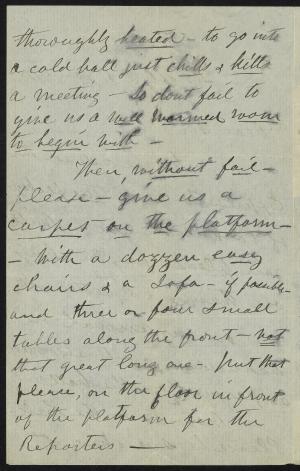 thoroughly heated - to go into
a cold hall just chills & kills
a meeting - So dont fail to
give us a well warmed room
to begin with -
Then, without fail -
please - give us a
carpet on the platform -
- with a dozzen easy
chairs & a Sofa - if possible -
and three or four small
tables along the front - not
that great long one - put that
please, on the floor in front
of the platform for the
Reporters -